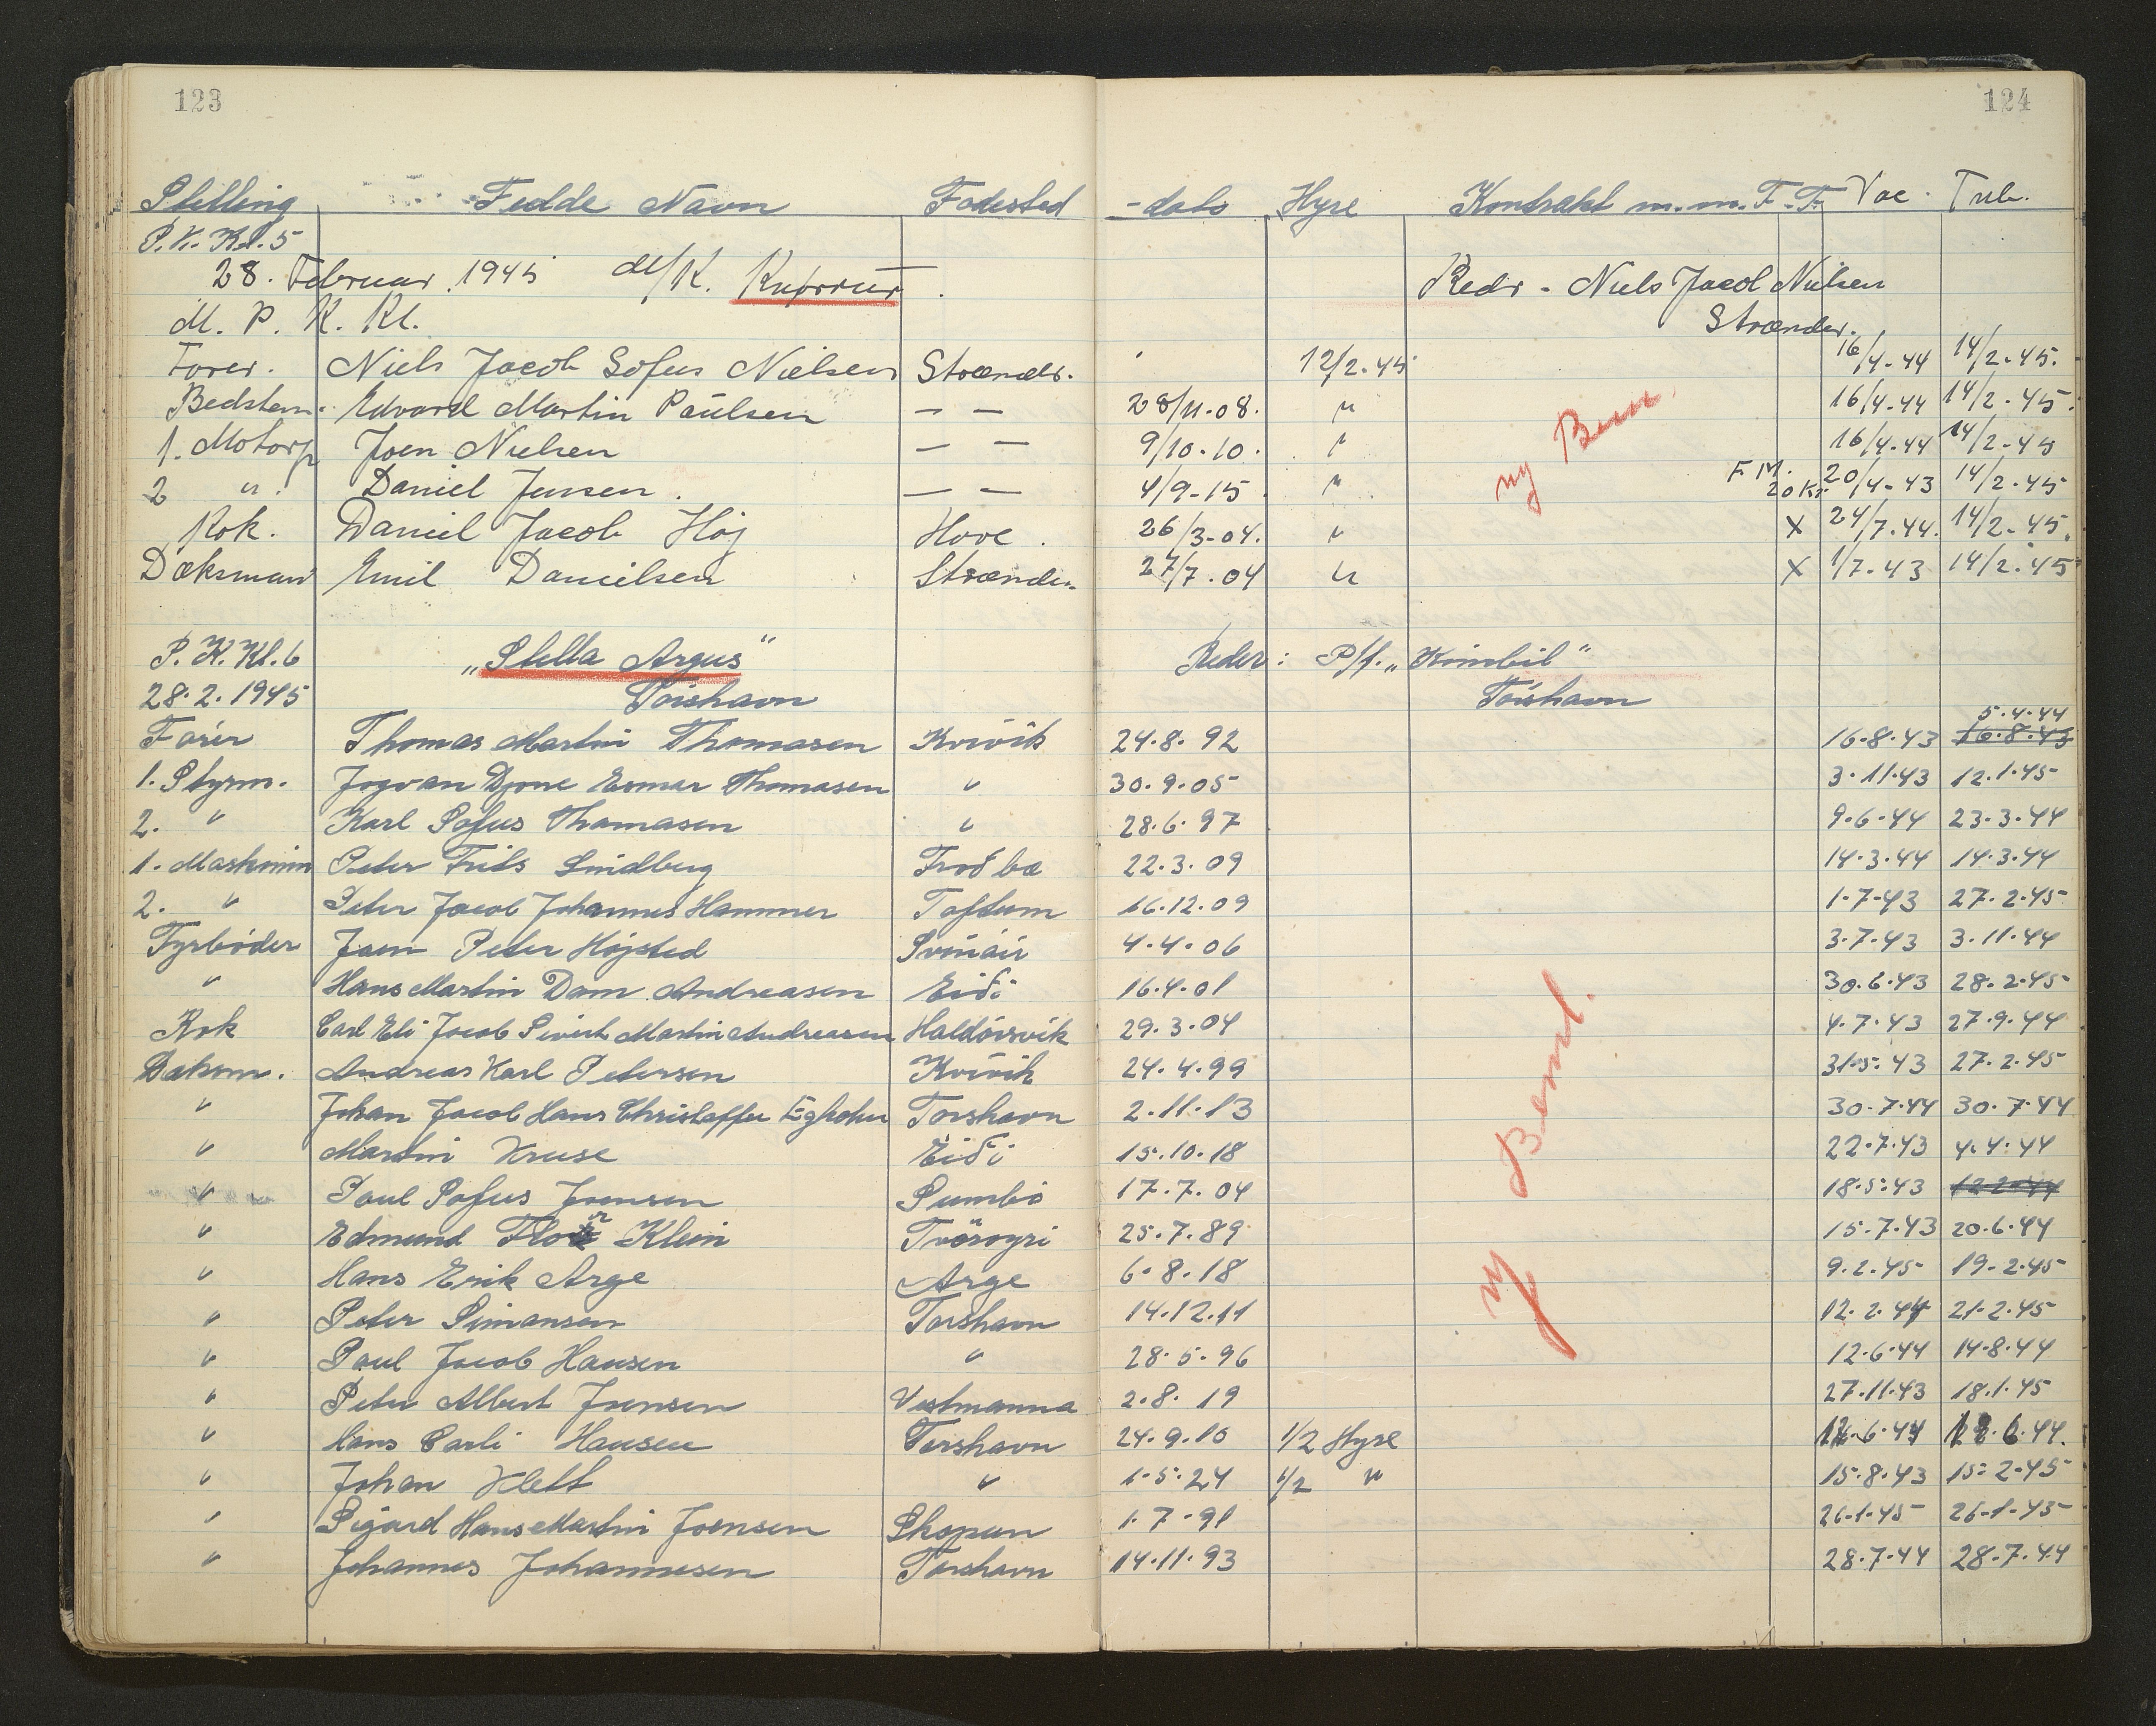 123
124
Stilling Fulde Navn Fødested -dato Hyre Kontrakt m.m. F.F. Vac. Tub.
P.K. Kl. 5
28. Februar. 1945 M/K.
Redr - Niels Jacob Nielsen
M. P. K. Kl.
Strænder.
Fører. Niels Jacob Sofus Nielsen Strænder. 12/2.45 16/4-44 14/2-45.
Bedstem. Edvard Martin Paulsen — — 28/11-08. " 16/4-44 14/2-45.
1. Motorp Joen Nielsen — — 9/10-10. " 16/4-44 14/2-45
2 " Daniel Jensen. — — 4/9-15. " F.M. 20 Kr. 20/4-43 14/2-45
Kok. Daniel Jacob Høj Hove. 26/3-04. " X 24/7.44. 14/2-45.
Dæksmand Emil Danielsen Strænder. 27/7.04 " X 1/7.43 14/2.45
ny Bem.
P.K. Kl. 6 "Stella Argus" Reder: P/f. "Kimbil"
28.2.1945 Tórshavn Tórshavn
5.4.44
Fører Thomas Martin Thomasen Kvívík 24.8.92 16.8.43 16.8.43
1. Styrm. Jogvan Djone Esmar Thomasen " 30.9.05 3.11.43 12.1.45
2. " Karl Sofus Thomasen " 28.6.97 9.6.44 23.3.44
1. Maskinm Peter Frits Lindberg Froðba 22.3.09 14.3.44 14.3.44
2. " Peter Jacob Johannes Hammer Toftum 16.12.09 1.7.43 27.2.45
Fyrbøder Joen Peter Højsted Svínáir 4.4.06 3.7.43 3.11.44
" Hans Martin Dam Andreasen Eiði 16.4.01 30.6.43 28.2.45
Kok Carl Eli Jacob Sivert Martin Andreasen Haldórsvík 29.3.04 4.7.43 27.9.44
Dæksm. Andreas Karl Petersen Kvívík 24.4.99 31.5.43 27.2.45
" Johan Jacob Hans Christoffer Egholm Torshavn 2.11.13 30.7.44 30.7.44
" Martin Kruse Eiði 15.10.18 22.7.43 4.4.44
" Poul Sofus Joensen Sumbø 17.7.04 18.5.43 12.2.44
" Edmund Klein Tvöroyri 25.7.89 15.7.43 20.6.44
" Hans Erik Arge Arge 6.8.18 9.2.45 19.2.45
" Peter Simonsen Torshavn 14.12.11 12.2.44 21.2.45
" Poul Jacob Hansen " 28.5.96 12.6.44 14.8.44
" Peter Albert Joensen Vestmanna 2.8.19 27.11.43 18.1.45
" Hans Carli Hansen Torshavn 24.9.10 1/2 Hyre
" Johan Klett " 1.5.24 1/2 " 15.8.43 15.2.45
" Sigard Hans Martin Joensen Skopun 1.7.91 26.1.45 26.1.45
" Johannes Johannesen Torshavn 14.11.93 28.7.44 28.7.44
ny Bem.